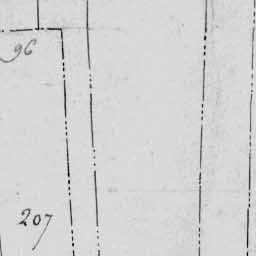 96
207